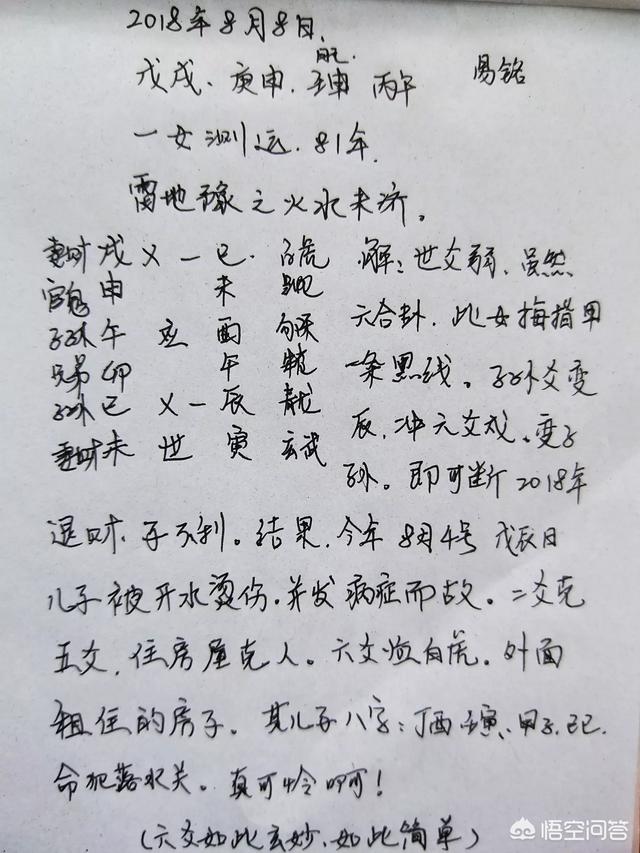 2018年8月8日.
戌亥.
戊戌、庚申、壬申 丙午 易铭
一女测运.81年.
雷地豫之火水未济。
妻财戌 X 一 巳 白虎 解:世爻弱、虽然
官鬼 申 未 螣蛇 六合卦,此女拇指甲
子孙 午 应 酉 勾陈 一条黑线。子孙爻变
兄弟 卯 午 朱雀
子孙 巳 X 一 辰 青龙 辰,冲六爻戌、变子
妻财 未 世 寅 玄武 孙。即可断2018年
退财、子不利。结果,今年8月4号 戊辰日
儿子被开水烫伤.并发病症而故。二爻克
五爻,住房屋克人。六爻临白虎。外面
租住的房子。其儿子八字:丁酉 壬寅、甲子、己巳.
命犯落水关。真可怜啊!
(六爻如此玄妙、如此简单)
悟空问答